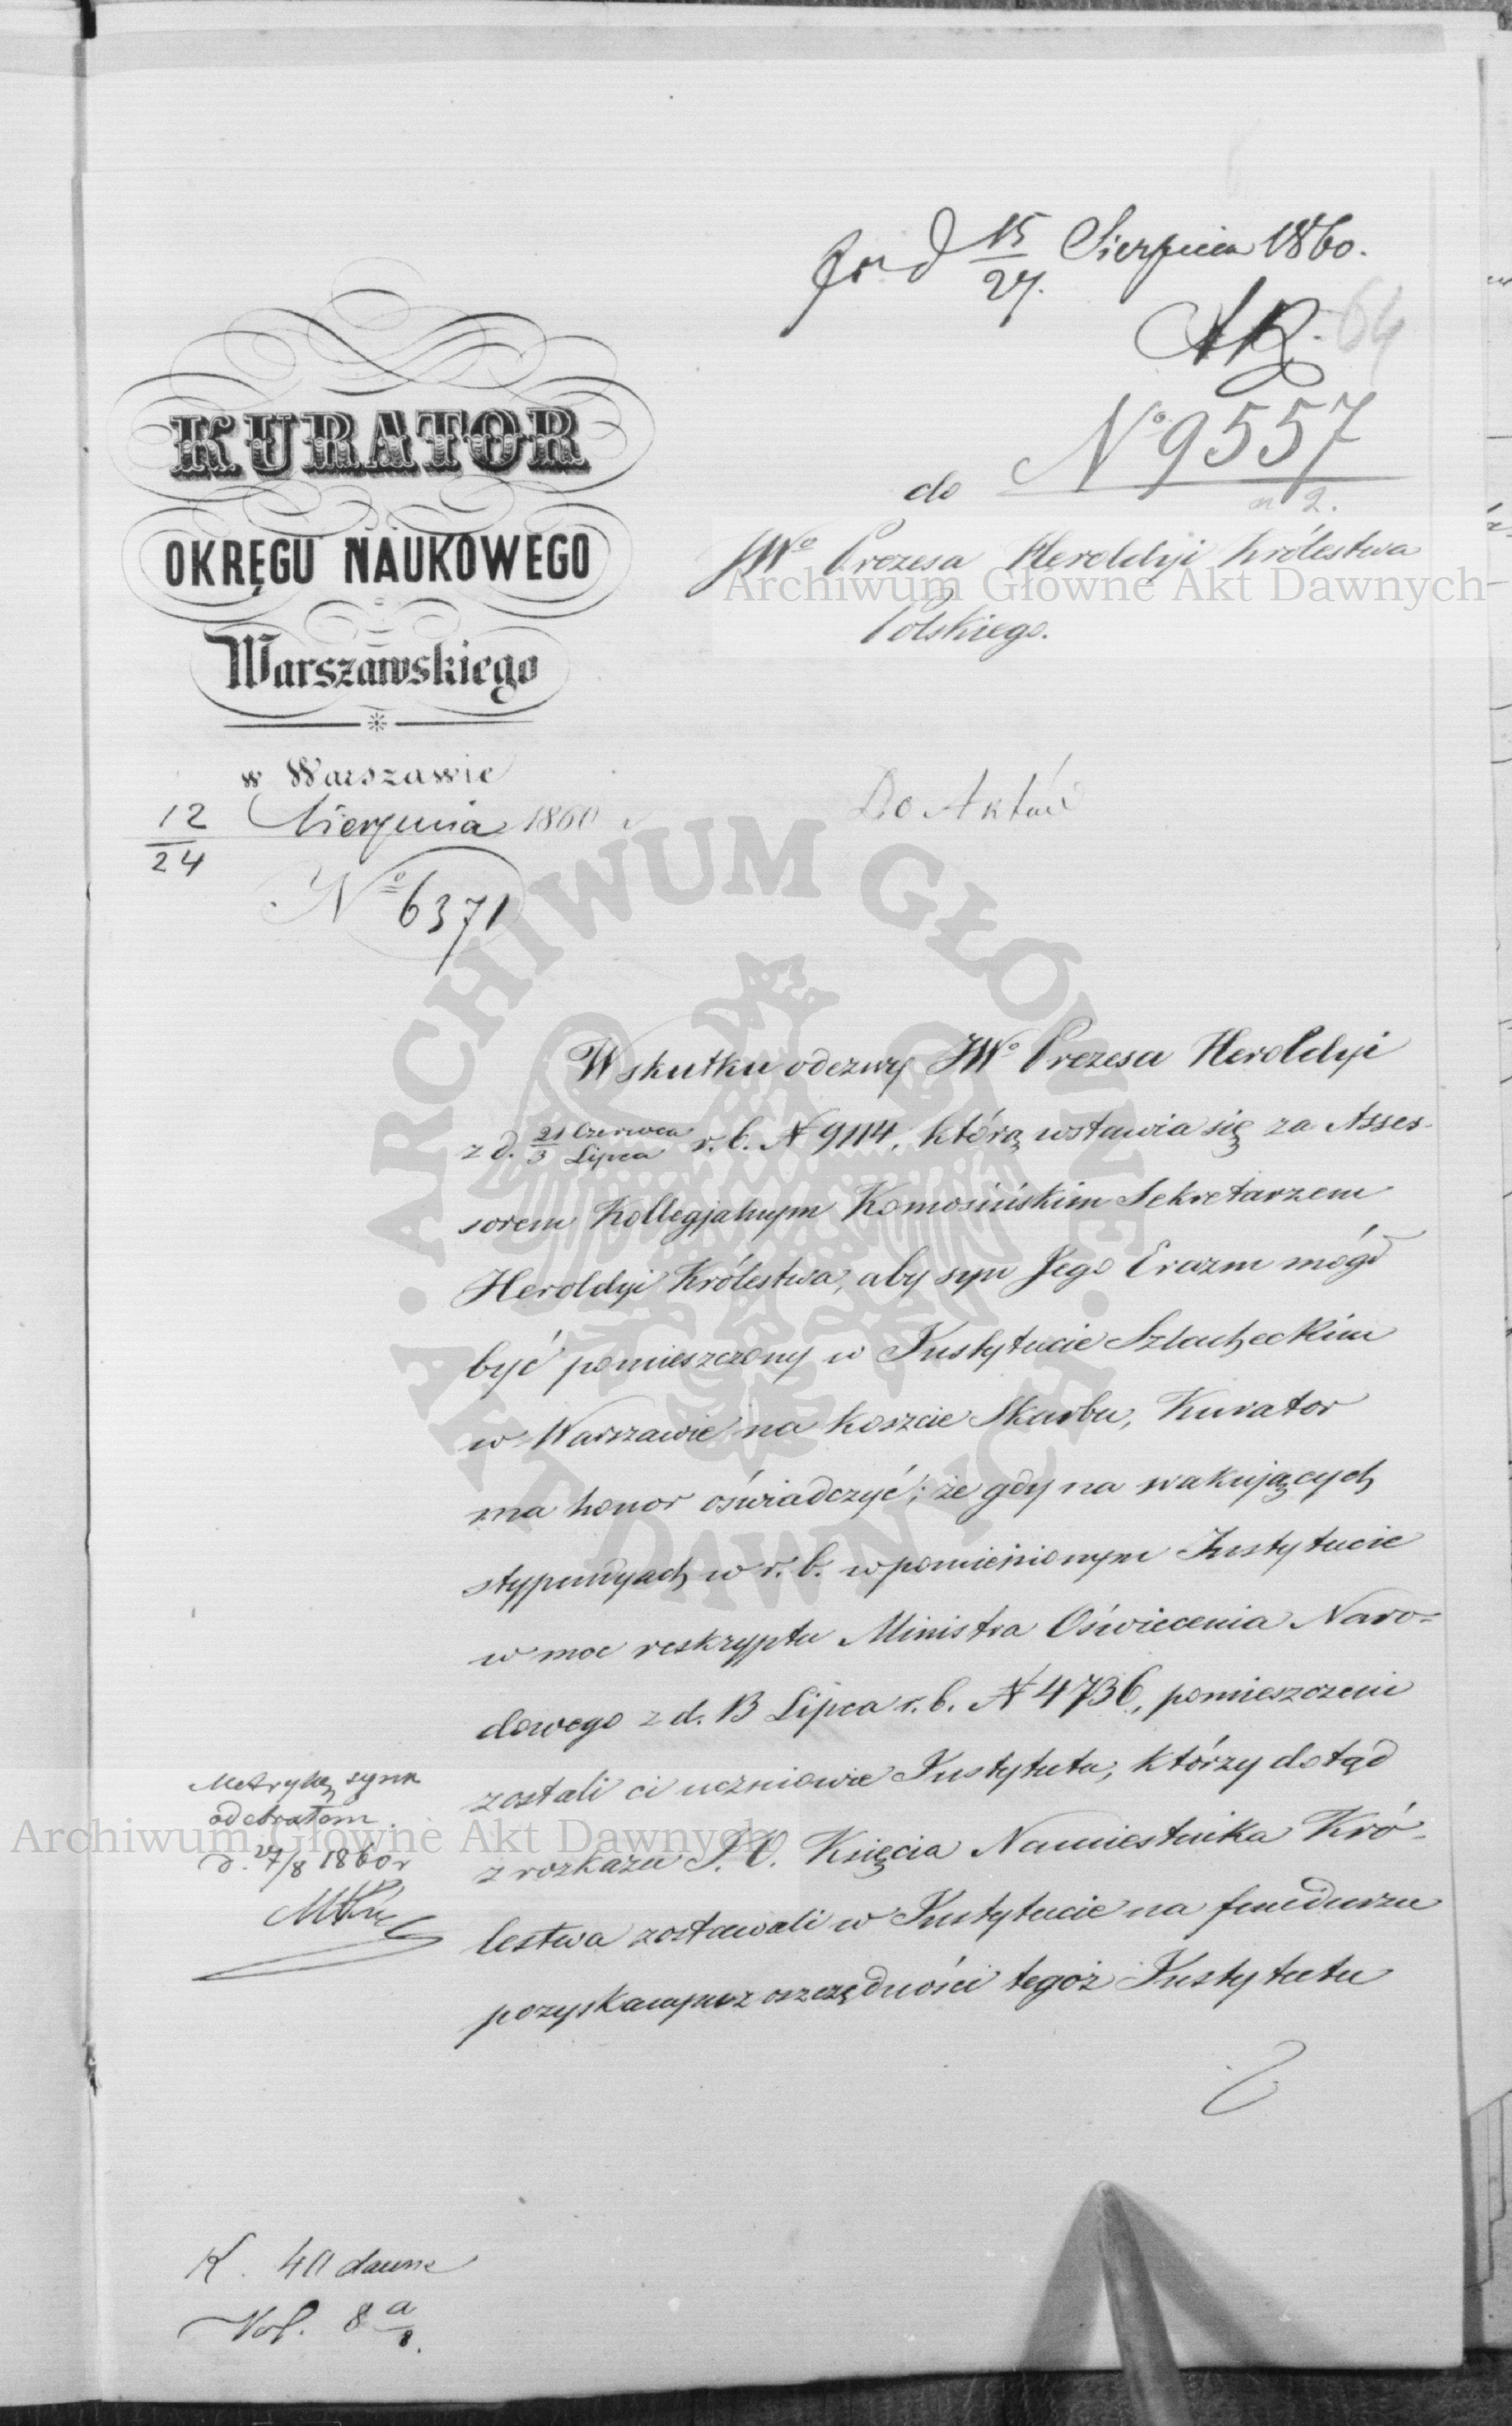 d 15/27. Sierpnia 1860.
64
№ 9557
do
n 2.
JWo Prezesa Heroldyi Królestwa
Polskiego.
KURATOR
OKRĘGU NAUKOWEGO
Warszawskiego
w Warszawie
12/24 Sierpnia 1860 r
№ 6371
Do Aktów
Wskutku odezwy JWo Prezesa Heroldyi
z d. 21 Czerwca/3 Lipca r. b. N 9114, którą wstawia się za Asses-
sorem Kollegjalnym Komosińskim Sekretarzem
Heroldyi Królestwa, aby syn Jego Erazm mógł
być pomieszczony w Instytucie Szlacheckim
w Warszawie na koszcie Skarbu, Kurator
ma honor oświadczyć, że gdy na wakujących
stypendyach w r. b. w pomienionym Instytucie
w moc reskryptu Ministra Oświecenia Naro-
dowego z d. 13 Lipca r. b. N 4736, pomieszczeni
zostali ci uczniowie Instytutu, którzy dotąd
z rozkazu J. O. Księcia Namiestnika Kró-
lestwa zostawali w Instytucie na funduszu
pozyskanym z oszczędności tegoż Instytutu
Metrykę syna
odebrałem
d. 27/8 1860 r
K. 40 dawne
Vol. 8 a/1.
Archiwum Główne Akt Dawnych
ARCHIWUM GŁÓWNE AKT DAWNYCH
Archiwum Główne Akt Dawnych